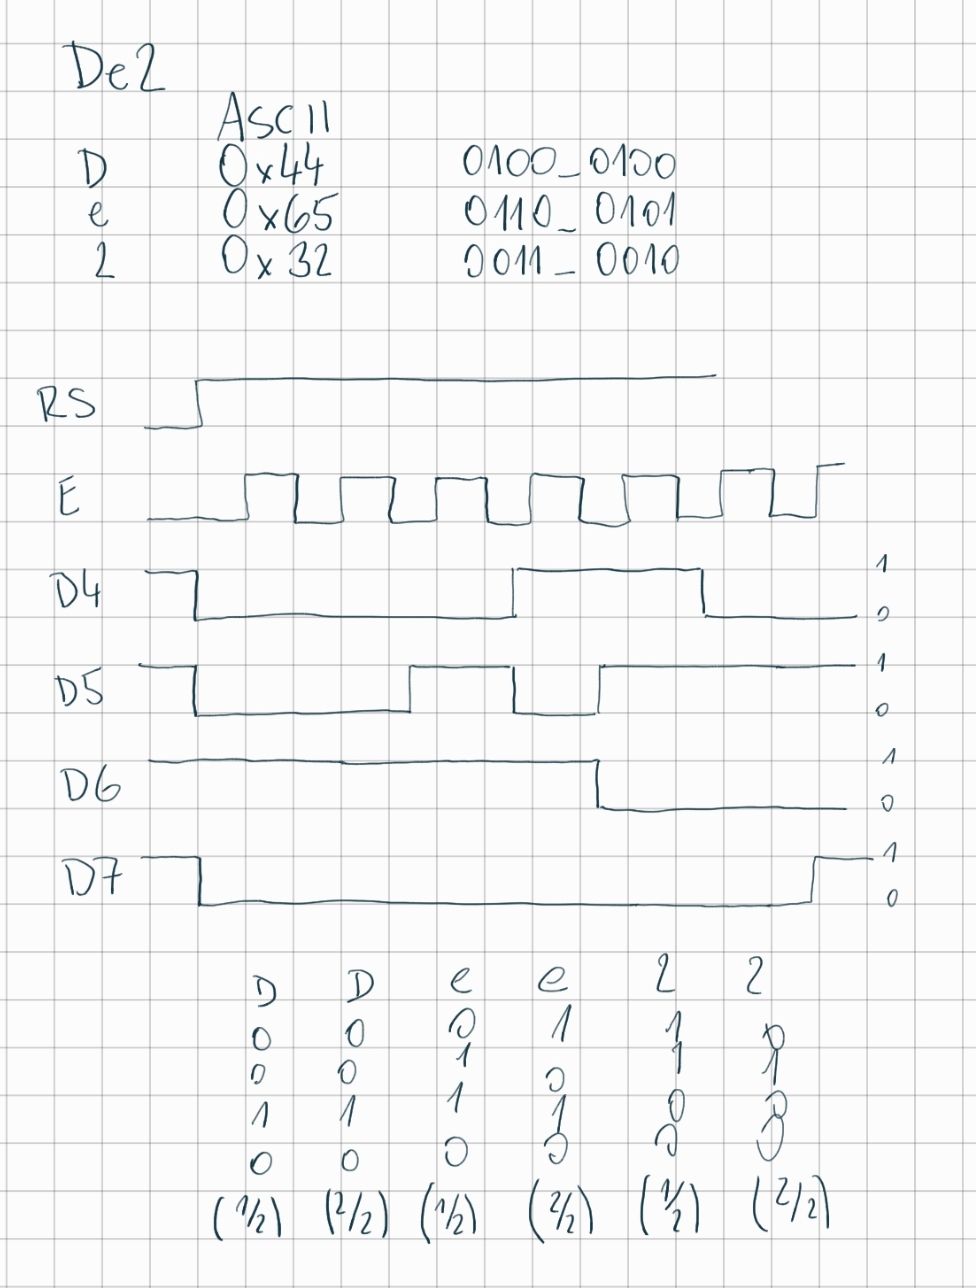 De2
ASCII
D 0x44 0100_0100
e 0x65 0110_0101
2 0x32 0011_0010
RS
E
D4 1
0
D5 1
0
D6 1
0
D7 1
0
D D e e 2 2
0 0 0 1 1 0
0 0 1 0 1 1
1 1 1 1 0 0
0 0 0 0 0 0
(1/2) (2/2) (1/2) (2/2) (1/2) (2/2)